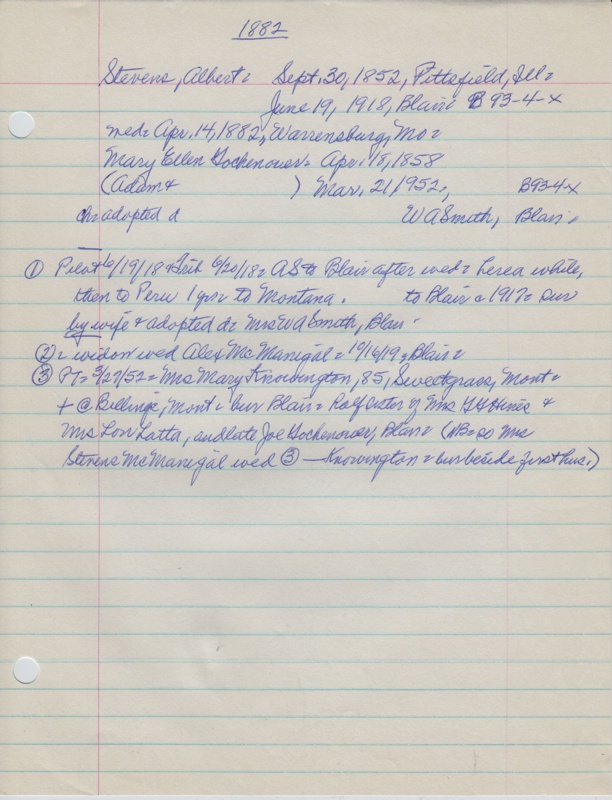 1882
Stevens, Albert = Sept. 30, 1852, Pittsfield, Ill =
June 19, 1918, Blair = B 93-4-x
wed = Apr. 14, 1882, Warrensburg, Mo =
Mary Ellen Gochenour = Apr. 18, 1858
(Adam + ) Mar. 21, 1952, B93-4-x
ch = adopted d W A Smith, Blair =
① Pilot 6/19/18 + Trib 6/20/18 = AS to Blair after wed = here a while,
then to Peru 1 yr = to Montana. to Blair c 1917 = sur
by wife + adopted d = Mrs W A Smith, Blair.
② = widow wed Alex McManigal = 10/16/19 = Blair =
③ PT = 3/27/52 = Mrs Mary Knowington, 85, Sweetgrass, Mont =
+ @ Billings, Mont = bur Blair = half sister of Mrs Hines +
Mrs Lon Latta, and late Joe Gochenour, Blair = (NB = so Mrs
Stevens McManigal wed ③ — Knowington = bur beside first hus.)